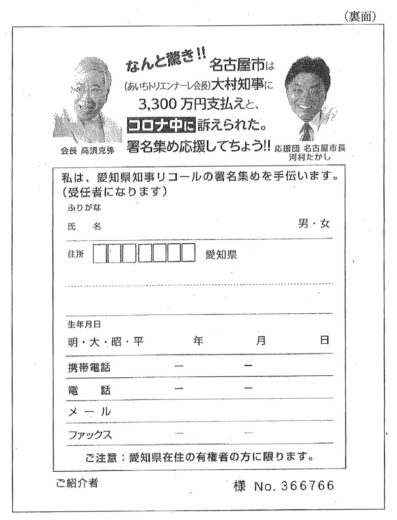 （裏面）
なんと驚き!!
名古屋市は
（あいちトリエンナーレ会長）大村知事に
3,300 万円支払えと、
コロナ中に訴えられた。
署名集め応援してちょう!!
会長 高須克弥
応援団 名古屋市長
河村たかし
私は、愛知県知事リコールの署名集めを手伝います。
（受任者になります）
ふりがな
氏　名
男・女
住所
愛知県
生年月日
明・大・昭・平　年　月　日
携帯電話　ー　ー
電　話　ー　ー
メ ー ル
ファックス　ー　ー
ご注意：愛知県在住の有権者の方に限ります。
ご紹介者
様 No. 366766